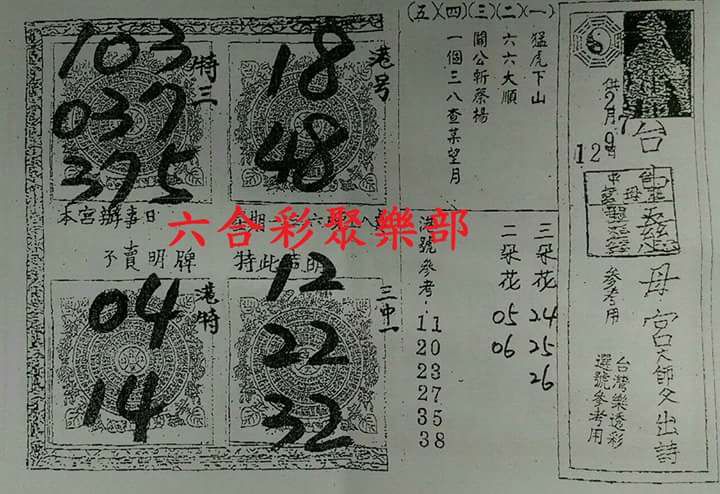 供2月9日
127
台
慈母宮大師父出詩
參考用
台灣樂透彩
選號參考用
(一)猛虎下山
(二)六六大順
(三)關公斬蔡楊
(四)一個三八查某望月
(五)
三朵花 24 25 26
二朵花 05 06
港號參考:11 20 23 27 35 38
港号
18
48
特三
103
037
375
本宮辦事日
星期
六合彩聚樂部
不賣明牌
特此
三中一
12
22
32
港特
04
14